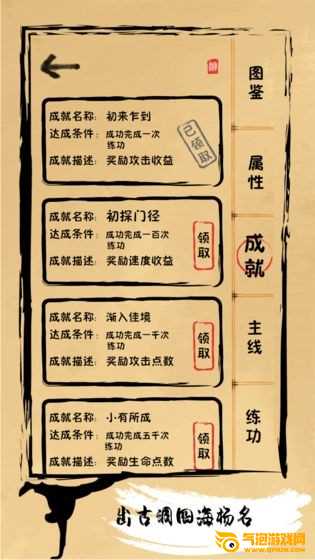 成就名称：初来乍到
达成条件：成功完成一次
练功
成就描述：奖励攻击收益
已领取
成就名称：初探门径
达成条件：成功完成一百次
练功
成就描述：奖励速度收益
领取
成就名称：渐入佳境
达成条件：成功完成一千次
练功
成就描述：奖励攻击点数
领取
成就名称：小有所成
达成条件：成功完成五千次
练功
成就描述：奖励生命点数
领取
图鉴
属性
成就
主线
练功
出古洞四海扬名
气泡游戏网